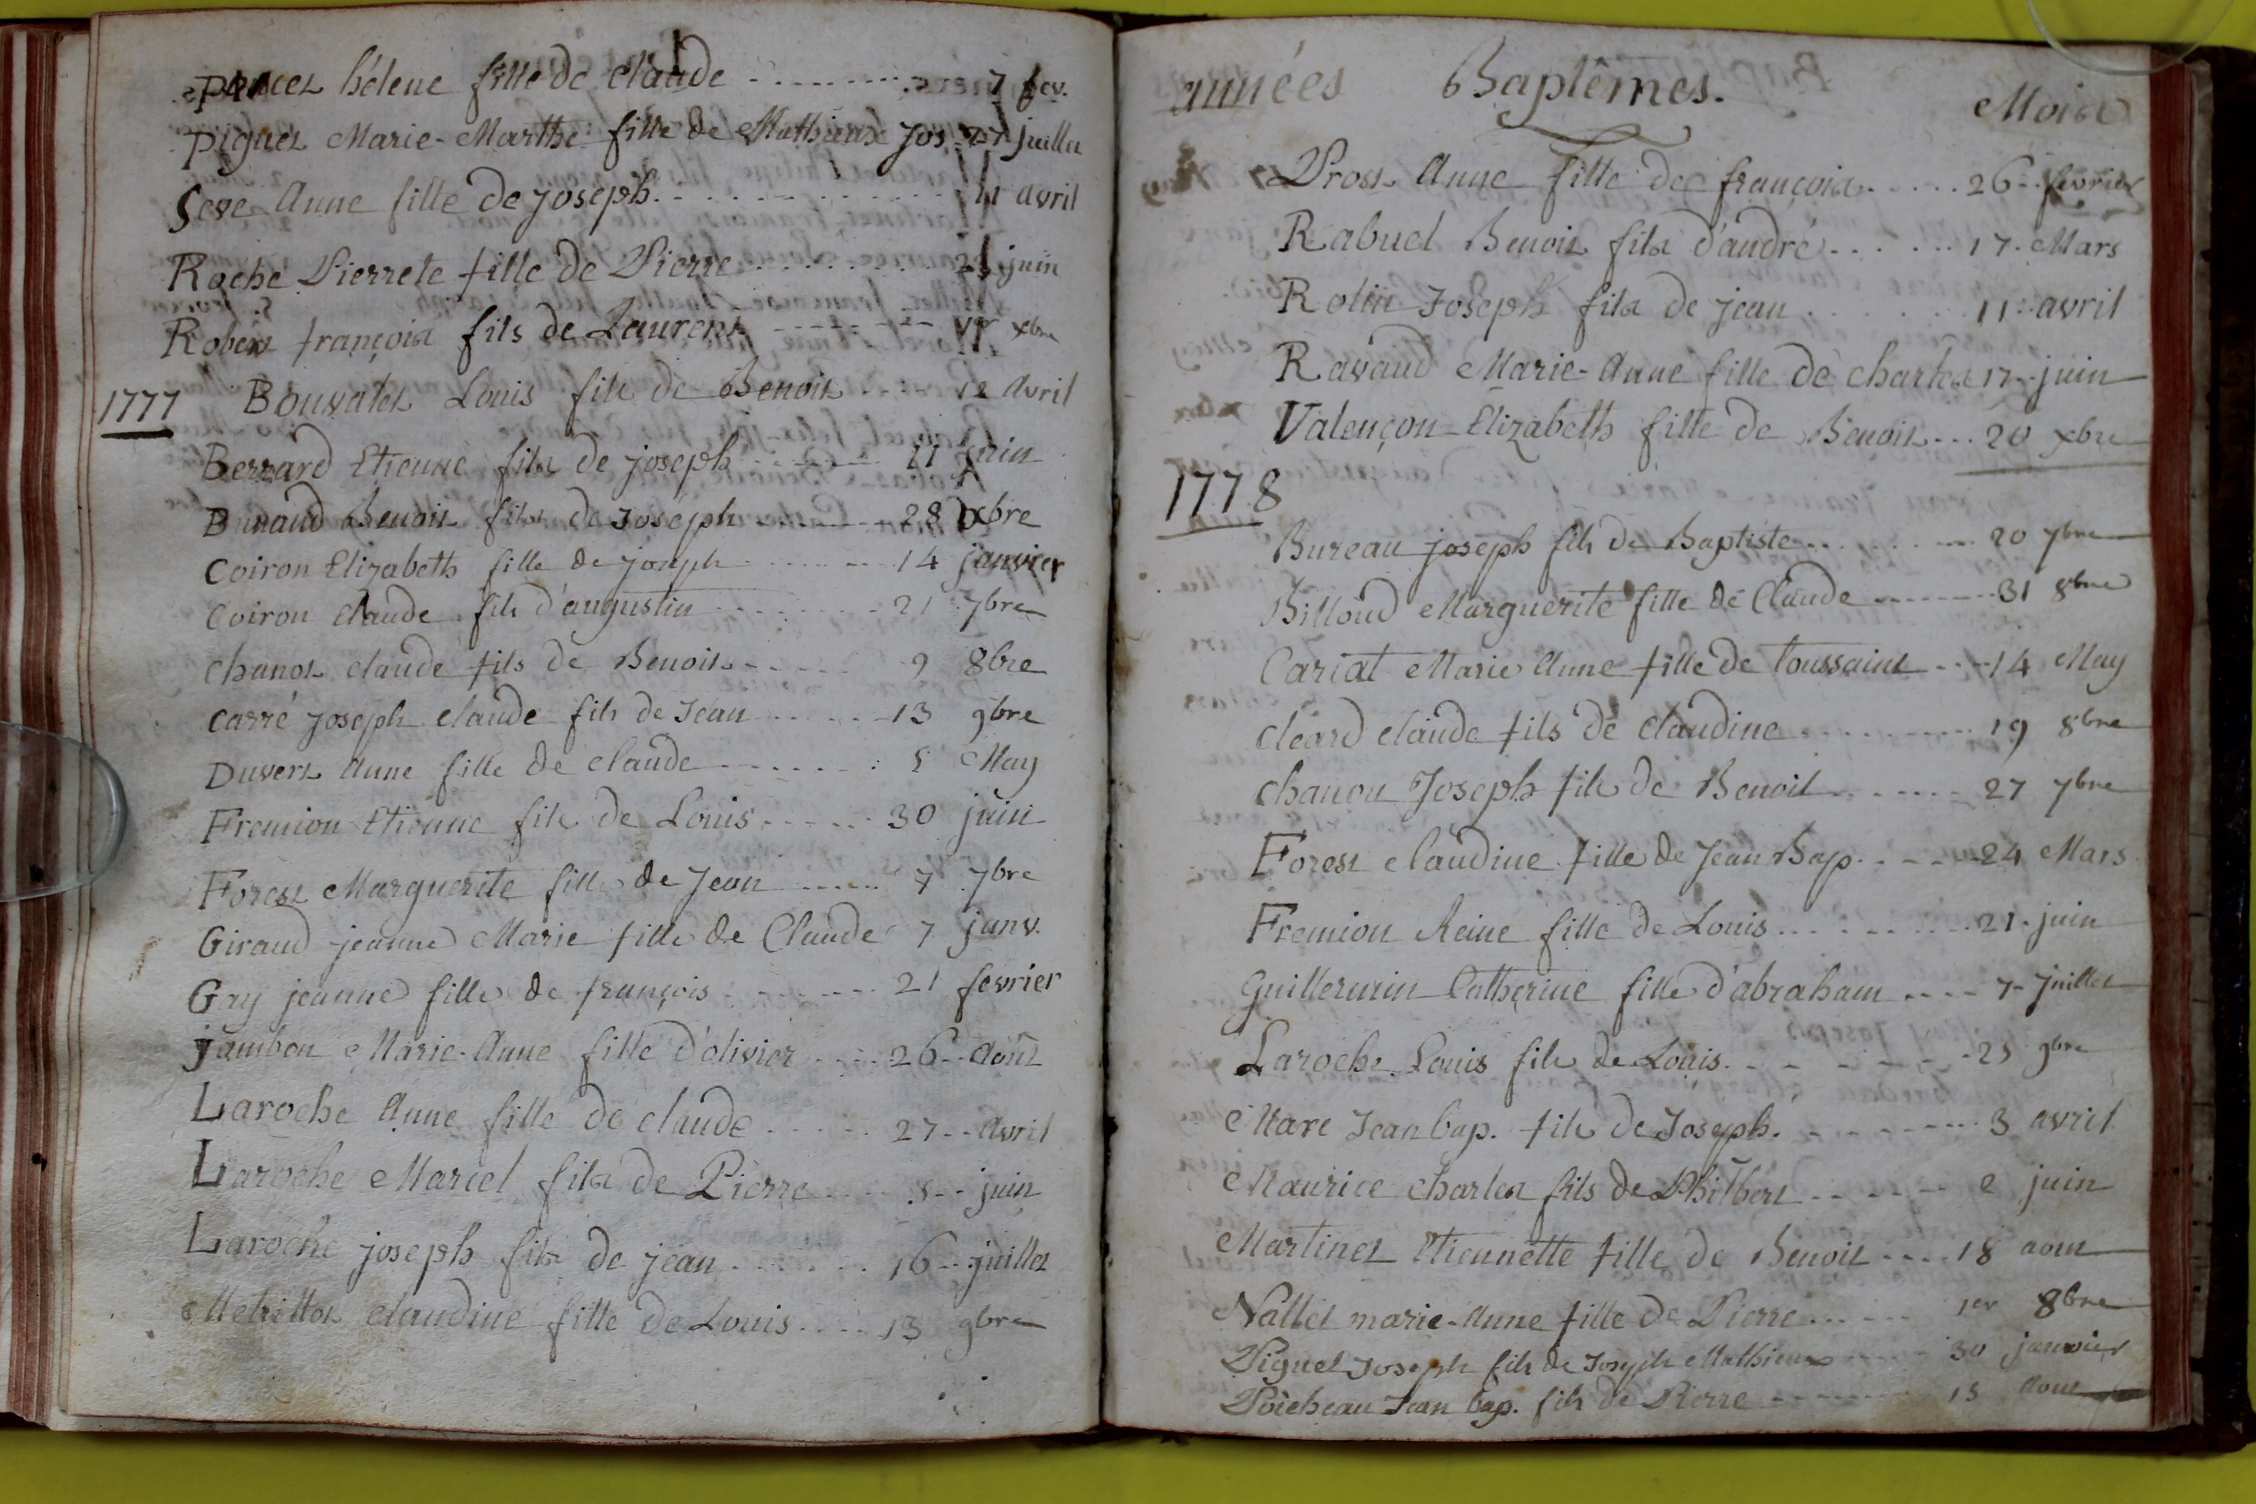 Poncet hélene fille de Claude ......... 7 fev.
Piguet Marie-Marthe fille de Mathieux Jos 27 juillet
Seve Anne fille de Joseph .............. 11 avril
Roche Pierrete fille de Pierre ......... juin
Robert françois fils de Laurent -------- 1er xbre
1777 Bouvatet Louis fils de Benoit ..... 12 Avril
Berrard Etienne fils de joseph ........ 11 juin
Bunaud Benoit fils de Joseph ........ 28 xbre
Coiron Elizabeth fille de joseph ........ 14 janvier
Coiron Claude fils d'augustin ........ 21 7bre
Chanot claude fils de Benoit ..... 9 8bre
Carré Joseph claude fils de Jean ...... 13 9bre
Duvert Anne fille de claude ....... 5 May
Fremion Etienne fils de Louis ...... 30 juin
Forest Marguerite fille de Jean ..... 7 7bre
Giraud jeanne Marie fille de Claude 7 janv.
Gay jeanne fille de françois ....... 21 fevrier
jambon Marie-Anne fille d'olivier .... 26 -- Août
Laroche Anne fille de claude ..... 27 -- Avril
Laroche Marcel fils de Pierre .... 5 -- juin
Laroche joseph fils de jean ...... 16 -- juillet
claudine fille de Louis .... 13 9bre
années Baptêmes. Mois
Prost Anne fille de françois ..... 26 -- fevrier
Rabuel Benoit fils d'andré ...... 17 - Mars
Rolin Joseph fils de jean ...... 11 -- avril
Ravaud Marie-Anne fille de charles 17 -- juin
Valençon Elizabeth fille de Benoit ... 20 xbre
1778
Bureau joseph fils de Baptiste ....... 20 7bre
Billoud Marguerite fille de Claude ....... 31 8bre
Cariat Marie Anne fille de toussaint .... 14 May
Cléard claude fils de claudine ......... 19 8bre
Chanon Joseph fils de Benoit ...... 27 7bre
Forest claudine fille de Jean Bap. .... 24 Mars
Fremion Reine fille de Louis ......... 21 - juin
Guillermin Catherine fille d'abraham .... 7 - Juillet
Laroche Louis fils de Louis. ....... 25 9bre
Mare Jean bap. fils de Joseph. ....... 3 avril
Maurice charles fils de Philbert ...... 2 juin
Martinet Etiennette fille de Benoit .... 18 aout
Nallet marie-Anne fille de Pierre ...... 1er 8bre
Piguet Joseph fils de Joseph Mathieux ..... 30 janvier
Poicheau Jean bap. fils de Pierre ....... 15 Aout